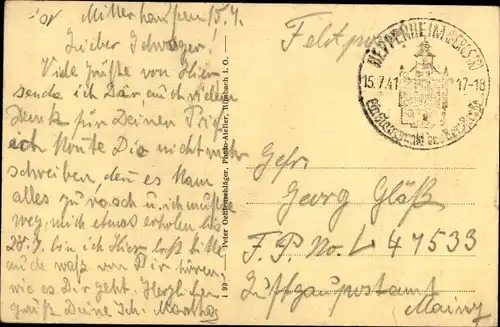 Mitterhausen 15.7.
Lieber Schwager!
Viele Grüße von Hier
sende ich Dir, auch vielen
Dank für Deinen Brief
ich konte Dir nicht mehr
schreiben, den es kam
alles zu rasch u. ich mußte
weg, mich etwas erholen bis
28.7. bin ich Hier laß bitte
auch waß von Dir hören,
wie es Dir geht. Herzlichen
gruß Deine Sch. Martha
I 99 - Peter Oehlenschläger, Photo-Atelier, Rimbach i. O.
Feldpost
HEPPENHEIM (BERGSTR)
15.7.41 17-18
Gefr.
Georg Gläß
F.P. No. L 47533
Luftgaupostamt
Mainz